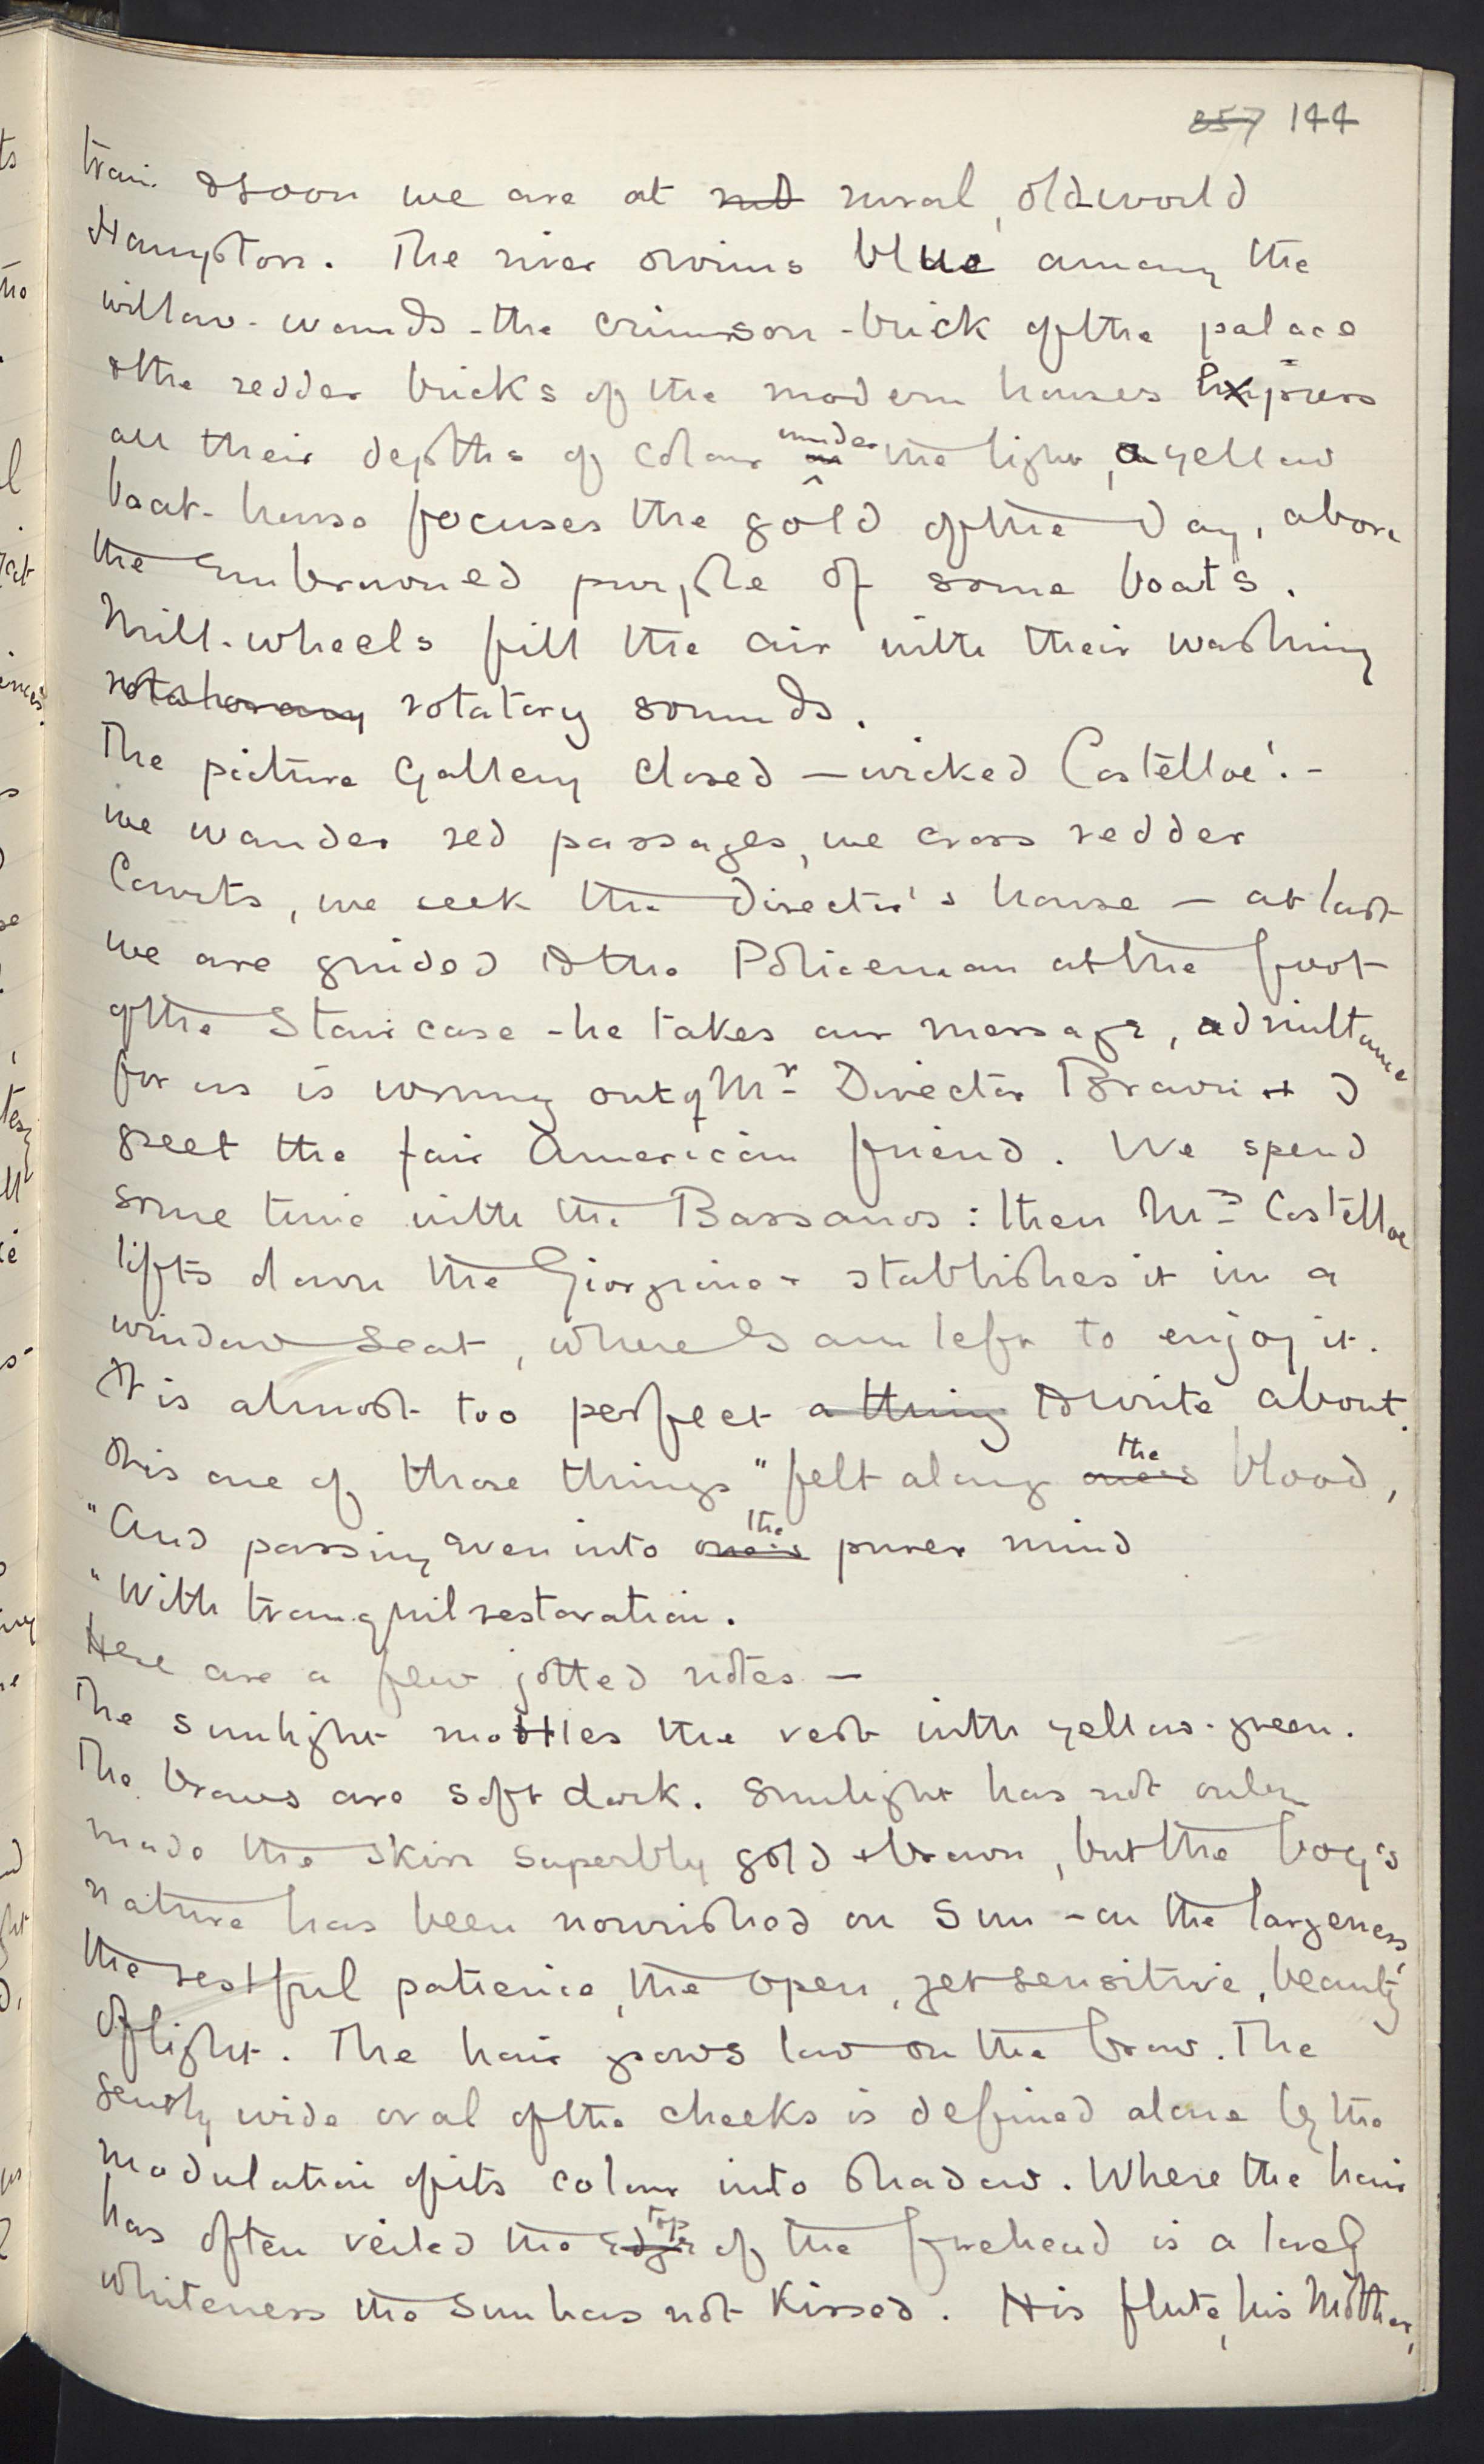 857 144
train & soon we are at rural, oldworld
Hampton. The river swims blue among the
willow-wands - the crimson-brick of the palace
& the redder bricks of the modern houses express
all their depths of colour under the light, a yellow
boat-house focuses the gold of the day, above
the embrowned purple of some boats.
Mill-wheels fill the air with their washing
rotatory sounds.
The picture Gallery closed — wicked Costelloe! -
we wander red passages, we cross redder
Courts, we seek the Director's house — at last
we are guided to the Policeman at the foot
of the Staircase - he takes our message, admittance
for us is wrung out of Mr Director & I
greet the fair American friend. We spend
some time with the Bassanos: then Mrs Costelloe
lifts down the Giorgione & stablishes it in a
window seat, where I am left to enjoy it.
It is almost too perfect a thing to write about.
It is one of those things "felt along one's the blood,
"And passing even into one's the purer mind
"With tranquil restoration.
Here are a few jotted notes —
The sunlight mottles the vest with yellow-green.
The brows are soft dark. Sunlight has not only
made the skin superbly gold & brown, but the boy's
nature has been nourished on Sun - on the largeness,
the restful patience, the open, yet sensitive, beauty
of light. The hair grows low on the brow. The
gently wide oval of the cheeks is defined alone by the
modulation of its colour into shadow. Where the hair
has often veiled the edge top of the forehead is a level
whiteness the Sun has not kissed. His flute, his Mother,